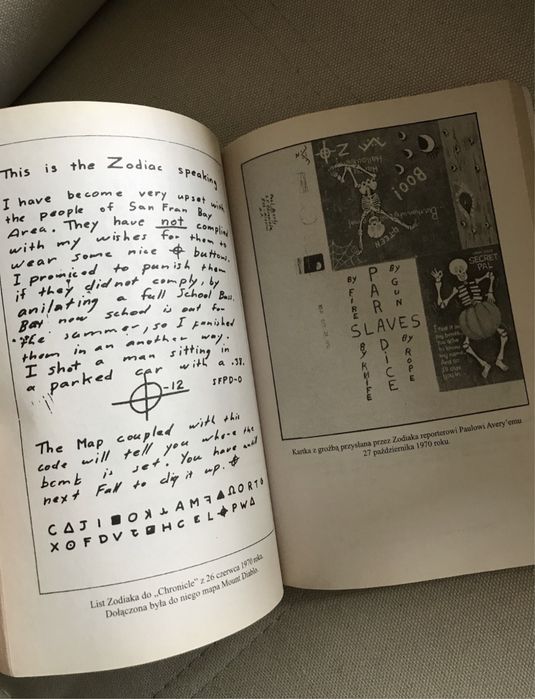 This is the Zodiac speaking
I have become very upset with
the people of San Fran Bay
Area. They have not complied
with my wishes for them to
wear some nice ⌖ buttons.
I promiced to punish them
if they did not comply, by
anilating a full School Buss.
But now school is out for
the summer, so I punished
them in an another way.
I shot a man sitting in
a parked car with a .38.
⌖-12 SFPD-0
The Map coupled with this
code will tell you where the
bomb is set. You have untill
next Fall to dig it up. ⌖
C Δ J I ■ O ꓘ ⊥ A M ꟻ ▲ Ω O R T G
X ⊙ F D V ■ H C E L ⌖ P W Δ
List Zodiaka do „Chronicle” z 26 czerwca 1970 roku.
Dołączona była do niego mapa Mount Diablo.
Z
BOO!
SECRET
PAL
BY FIRE
BY GUN
PARADICE
SLAVES
BY KNIFE
BY ROPE
Kartka z groźbą przysłana przez Zodiaka reporterowi Paulowi Avery'emu
27 października 1970 roku.